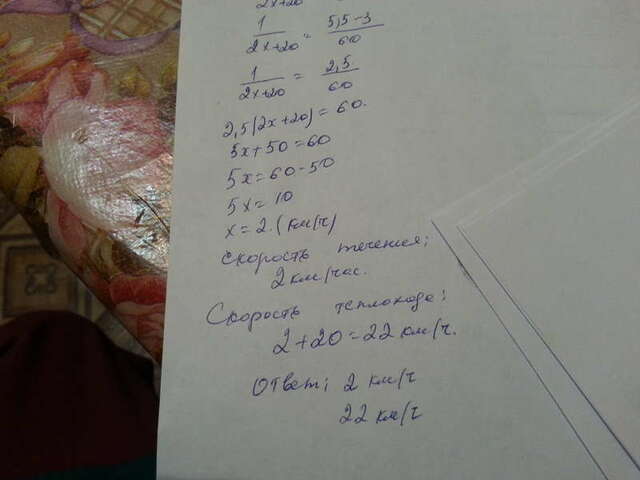 2x+20
1/(2x+20) = (5,5-3)/60
1/(2x+20) = 2,5/60
2,5(2x+20)=60.
5x+50=60
5x=60-50
5x=10
x=2.(км/ч)
Скорость течения;
2 км/час.
Скорость теплохода:
2+20=22 км/ч.
Ответ; 2 км/ч
22 км/ч